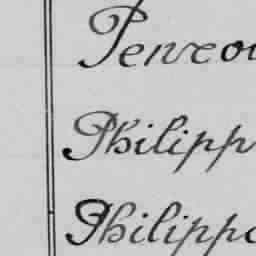 Penrou
Philipp
Philippe